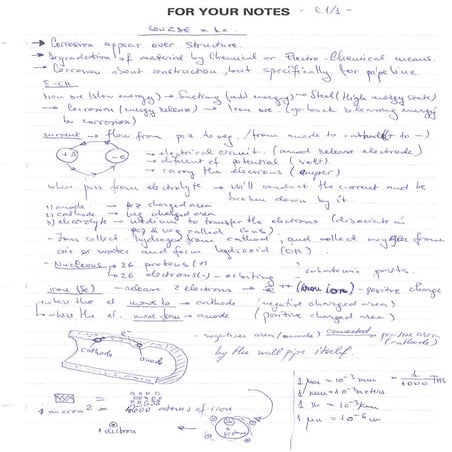 FOR YOUR NOTES
→ Corrosion appear over structure.
→ Degradation of material by Chemical or Electro-Chemical means.
→ Corrosion about construction, but specifically for pipeline
Iron ore (slow energy) → Smelting (add energy) → Steel (High energy state)
→ Corrosion (energy release) → Iron ore (go back to energy
by corrosion)
current → flow from poz to neg. / from anode to (+ to -)
→ electrical circuit. (and release electrode)
→ diferent of potential (volt)
→ carry the electrons (amper)
when pass from electrolyte → will conduct the current and be
broken down by it
1) anode → poz charged area
2) cathode → neg charged area
3) electrolyte → medium to transfer the electrons (dissociate in
poz & neg called ions).
- Ions collect hydrogen from cathode, and collect oxygen from
air or water and form hydroxid (OH)
- Nucleous → 26 protons (+)
→ 26 electrons (-) → orbiting subatomic parts.
iron (Fe) - release 2 electrons → (iron ion) - positive charge
→ the el. move to → cathode. (negative charged area)
→ the el. from → anode (positive charged area)
e-
cathode
anode
- negative area (anode) connected → positive area
(cathode)
by the wall pipe itself.
1 micron² = 4000 atoms of iron
1 electron
1 µm = 10⁻³ mm = 1/1000
1 mm = 10⁻³ meters
1 m = 10⁻³ km
1 µm = 10⁻⁶ m